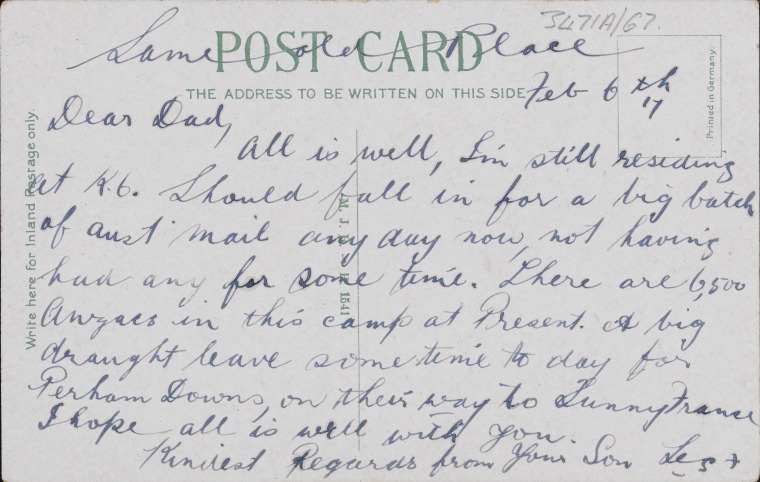 3471A/67.
POST CARD
Same old Place
THE ADDRESS TO BE WRITTEN ON THIS SIDE
Feb 6th
17
Printed in Germany.
Write here for Inland Postage only.
Dear Dad,
All is well, I'm still residing
at K.6. Should fall in for a big batch
of aust mail any day now, not having
had any for some time. There are 6,500
Anzacs in this camp at Present. A big
draught leave some time to day for
Perham Downs, on their way to Sunny France
I hope all is well with you.
Kindest Regards from Your Son Les +